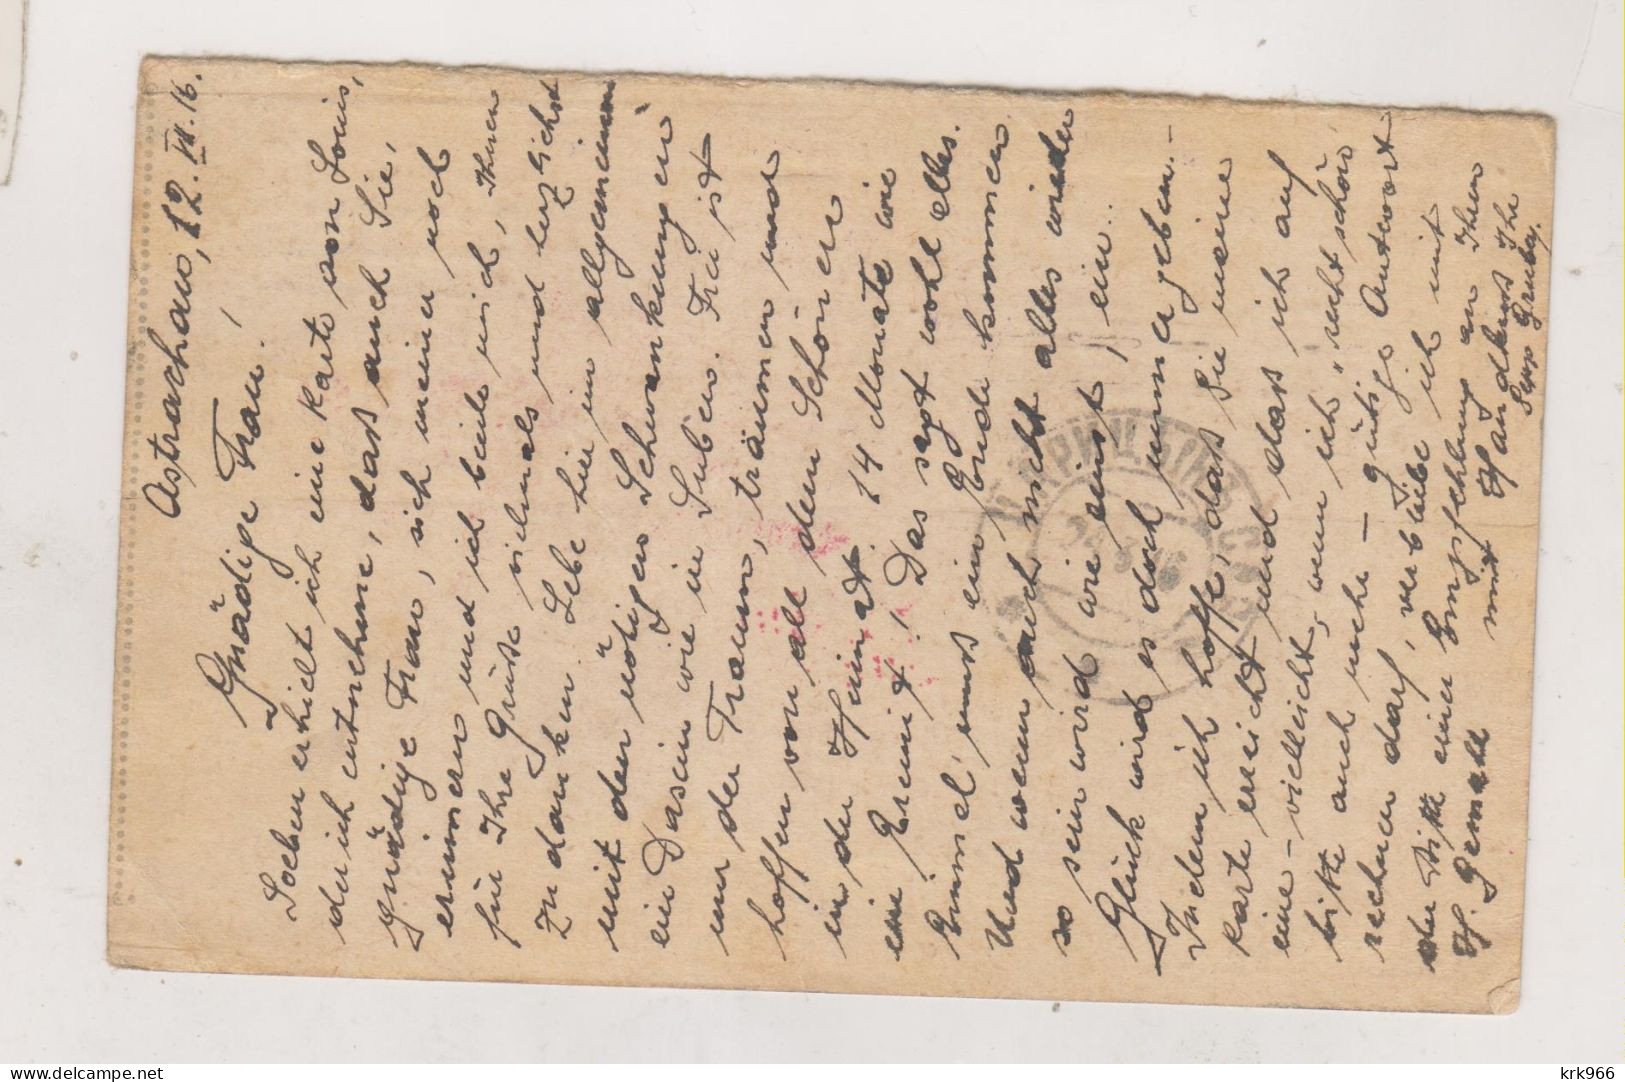 Astrachan, 12. VII. 16.
Gnädige Frau!
Soeben erhielt ich eine Karte von Louis,
der ich entnehme, dass auch Sie,
Gnädige Frau, sich meiner noch
erinnern und ich beeile mich, Ihnen
für Ihre Grüße vielmals und herzlichst
zu danken. Lebe hier im allgemeinen
mit den nötigen Schwankungen
ein Dasein wie in Sibirien. Frei ist
nur der Traum, träumen und
hoffen von all dem Schönen
in der Heimat. 14 Monate wie
ein Eremit! Das sagt wohl alles.
Einmal muss ein Ende kommen
Und wenn auch nicht alles wieder
so sein wird wie einst, ein
Glück wird es doch immer geben.-
Indem ich hoffe, dass Sie meine
Karte erreicht und dass ich auf
eine - vielleicht, wenn ich "recht schön"
bitte auch mehr - gütige Antwort
rechnen darf, verbleibe ich mit
der Bitte einer Empfehlung an Ihren
H. Gemahl mit Handkuss Ihr
Sepp Gruber.
ЦАРИЦЫН
krk966